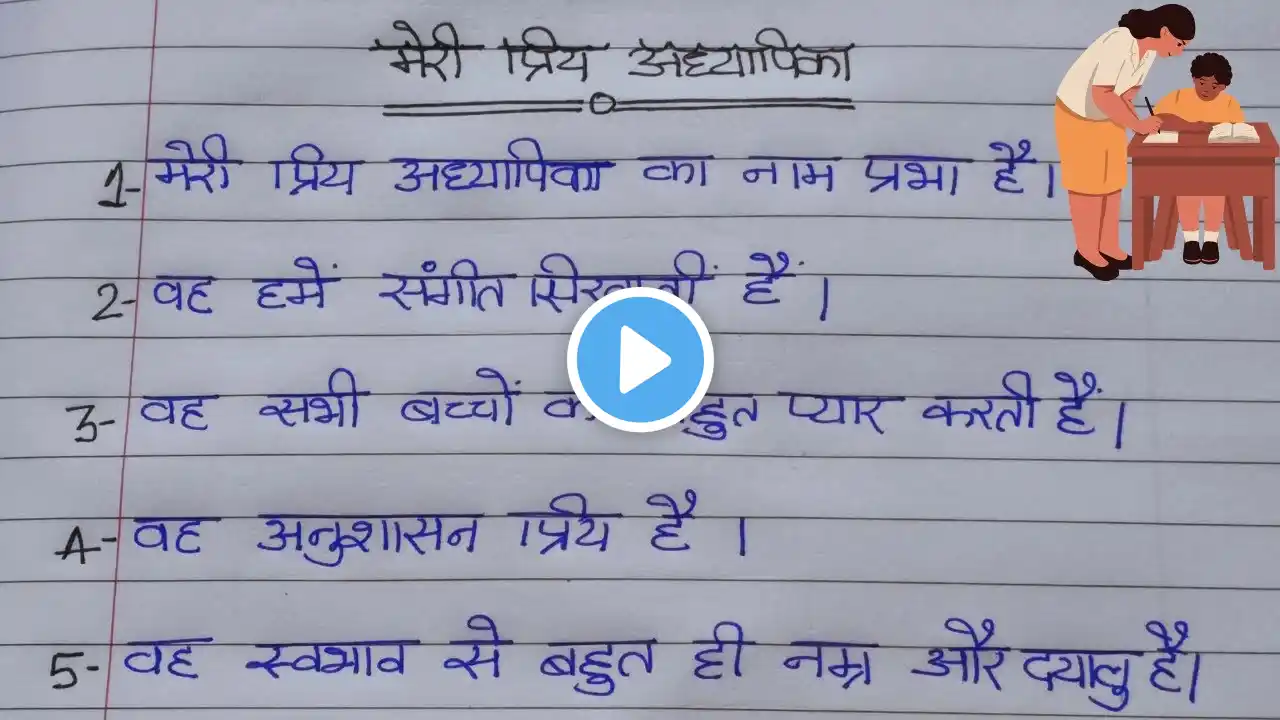 मेरी प्रिय अध्यापिका
1- मेरी प्रिय अध्यापिका का नाम प्रभा है।
2- वह हमें संगीत सिखातीं हैं।
3- वह सभी बच्चों बहुत प्यार करती हैं।
4- वह अनुशासन प्रिय है ।
5- वह स्वभाव से बहुत ही नम्र और दयालु है।